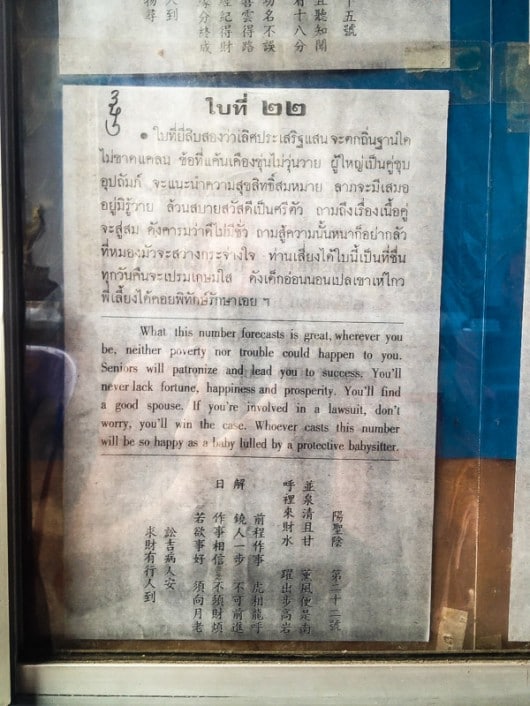 十五號
且聽知聞
有十八分
功名不誤
喜雲得路
經紀得財
分終成
人到
物尋
ใบที่ ๒๒
๏ ใบที่ยี่สิบสองว่าเลิศประเสริฐแสน จะตกถิ่นฐานใด
ไม่ขาดแคลน ข้อที่แค้นเคืองขุ่นไม่วุ่นวาย ผู้ใหญ่เป็นคู่ชุบ
อุปถัมภ์ จะแนะนำความสุขสิทธิ์สมหมาย ลาภจะมีเสมอ
อยู่มิรู้วาย ล้วนสบายสวัสดีเป็นศรีตัว ถามถึงเรื่องเนื้อคู่
จะสู่สม ดังคารมว่าดีไม่มีชั่ว ถามสู้ความนั้นหนาก็อย่ากลัว
ที่หมองมัวจะสว่างกระจ่างใจ ท่านเสี่ยงได้ใบนี้เป็นที่ชื่น
ทุกวันคืนจะเปรมเกษมใส ดังเด็กอ่อนนอนเปลเขาเห่ไกว
พี่เลี้ยงได้คอยพิทักษ์รักษาเอย ฯ
What this number forecasts is great, wherever you
be, neither poverty nor trouble could happen to you.
Seniors will patronize and lead you to success. You'll
never lack fortune, happiness and prosperity. You'll find
a good spouse. If you're involved in a lawsuit, don't
worry, you'll win the case. Whoever casts this number
will be so happy as a baby lulled by a protective babysitter.
陽聖陰 第二十二號
並泉清且甘 薰風便是南
呼裡來財水 躍出步高岩
前程作事 虎相龍呼
解 饒人一步 不可前進
日 作事相信 不須財煩
若欲事好 須向月老
訟吉病人安
求財有行人到